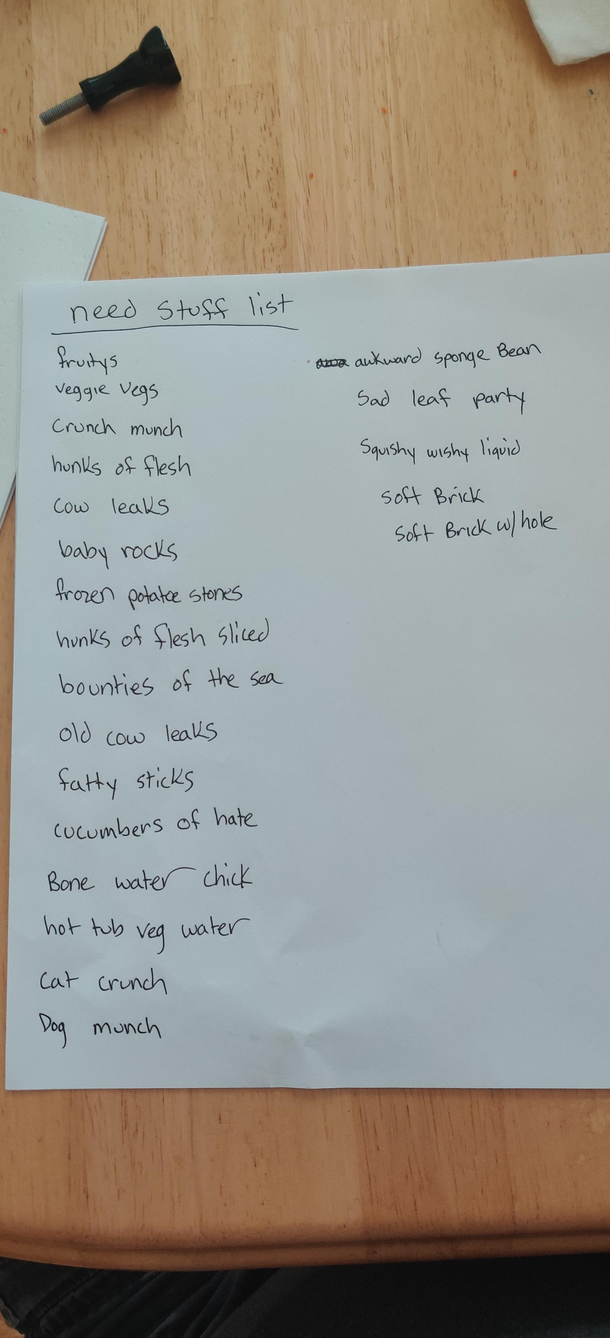 need stuff list
fruitys
veggie vegs
crunch munch
hunks of flesh
cow leaks
baby rocks
frozen potatoe stones
hunks of flesh sliced
bounties of the sea
old cow leaks
fatty sticks
cucumbers of hate
Bone water chick
hot tub veg water
cat crunch
Dog munch
awkward sponge Bean
Sad leaf party
Squishy wishy liquid
Soft Brick
Soft Brick w/ hole